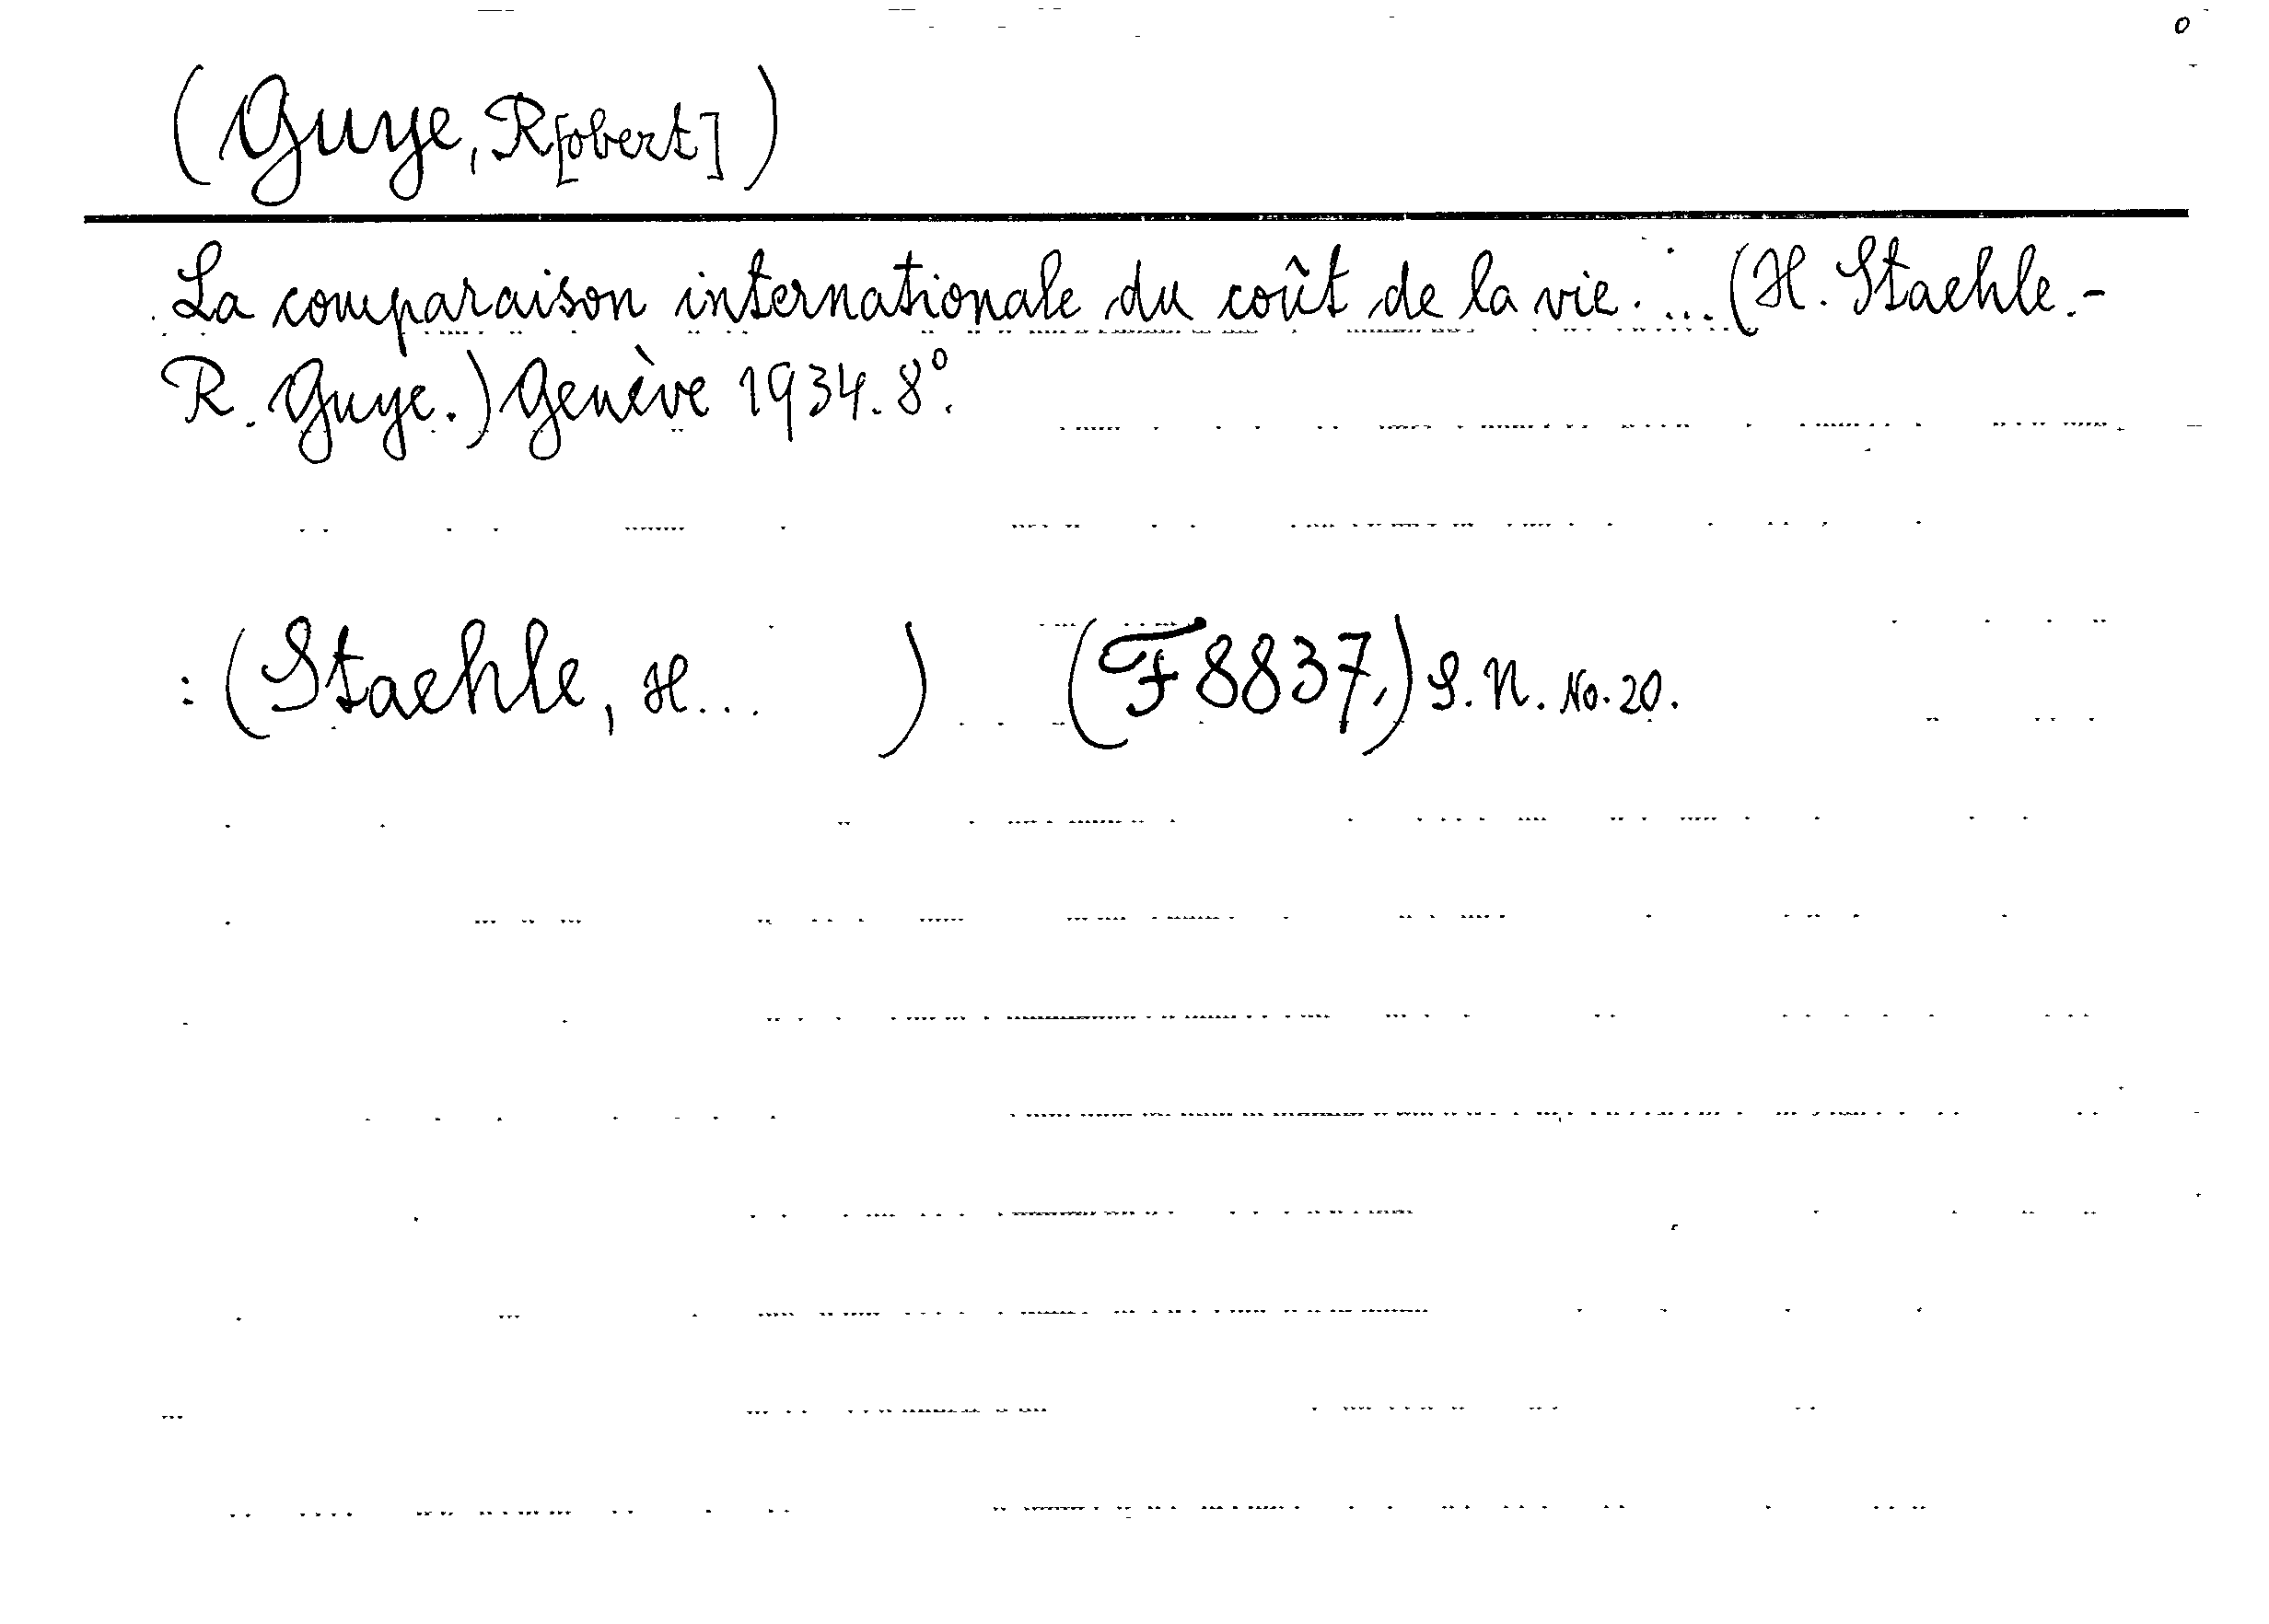 (Guye, R[obert])
La comparaison internationale du coût de la vie. ... (H. Staehle.-
R. Guye.) Genève 1934. 8°.
: (Staehle, H... ) (F 8837.) S.N. No. 20.